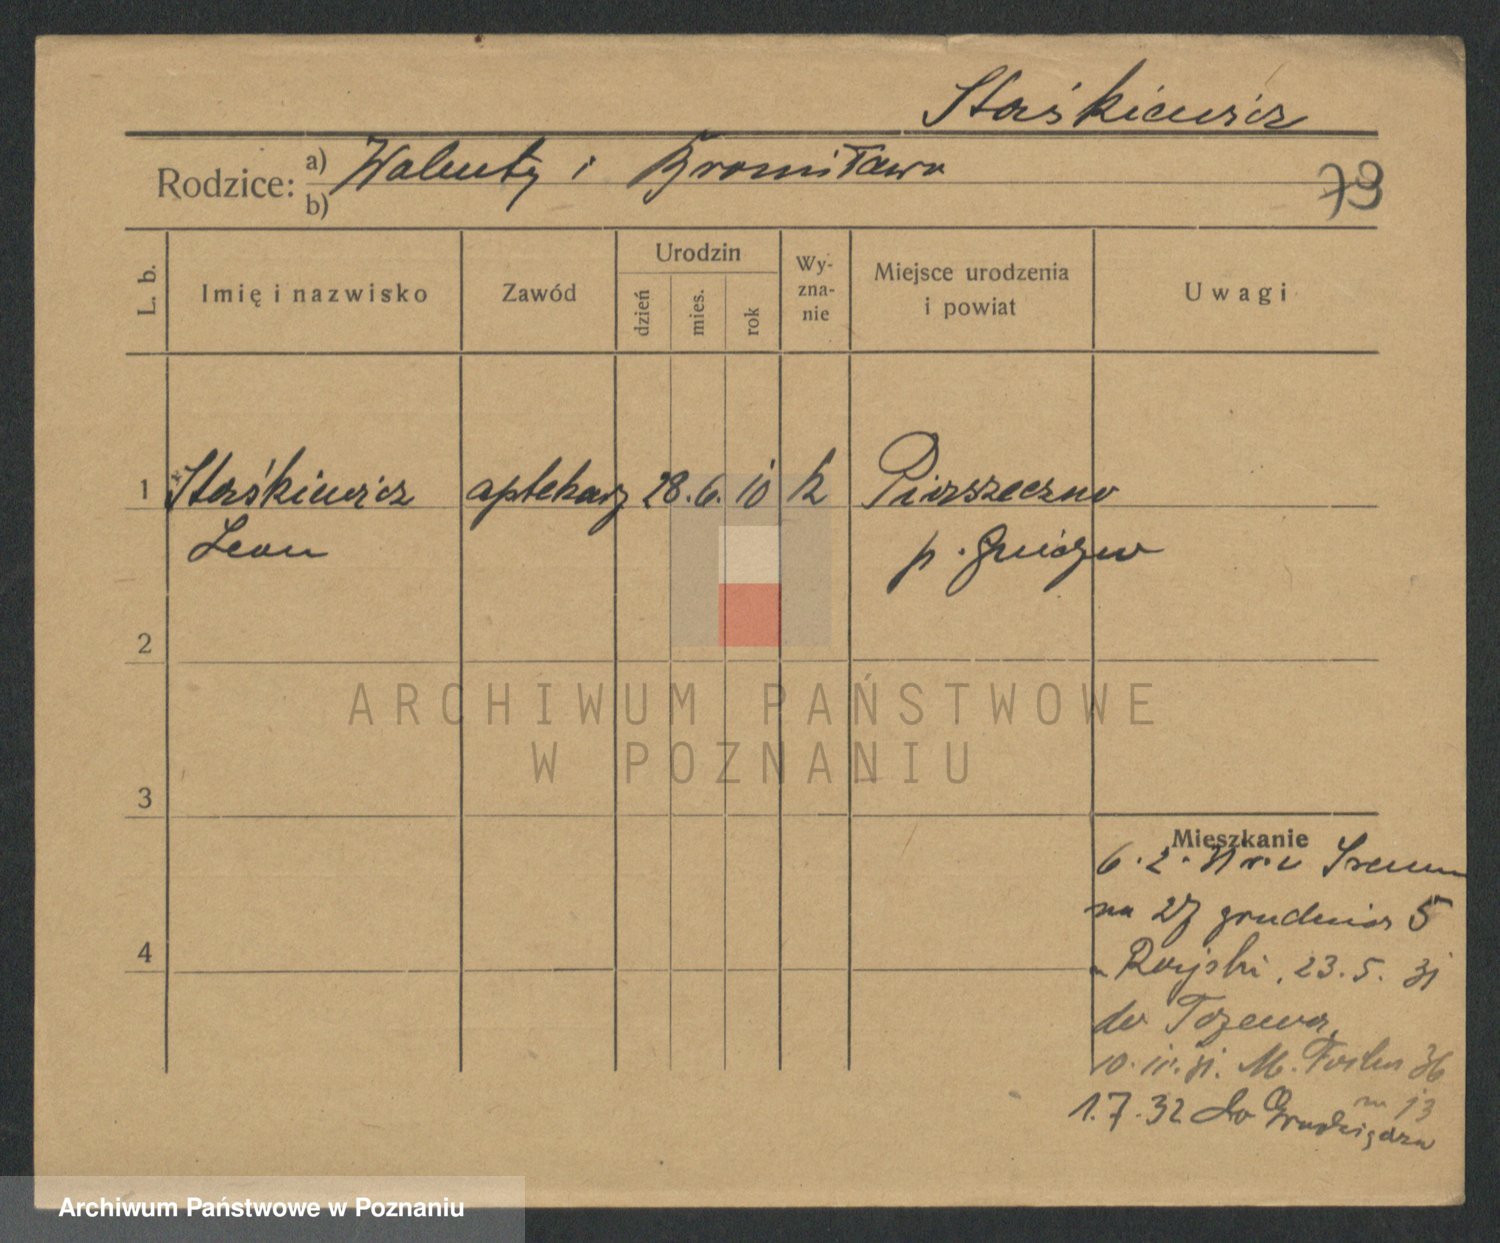 Staśkiewicz
Rodzice: a) Walenty i Bronisława
b)
79
L. b.
Imię i nazwisko
Zawód
Urodzin
dzień
mies.
rok
Wy-
zna-
nie
Miejsce urodzenia
i powiat
Uwagi
1 Staśkiewicz aptekarz 28. 6. 10 k
Leon p. Gniezno
2
ARCHIWUM PAŃSTWOWE
W POZNANIU
3
Mieszkanie
6. 2. 31 Srem
na 27 grudnia 5
4
23. 5. 31
do Tczewa
36
m 13
1. 7. 32 do Grudziądza
Archiwum Państwowe w Poznaniu